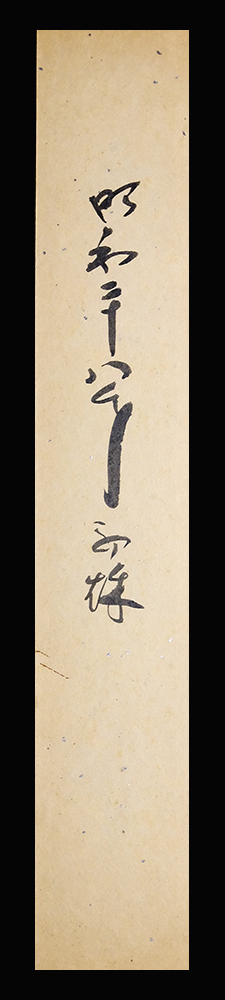 昭和二十八年